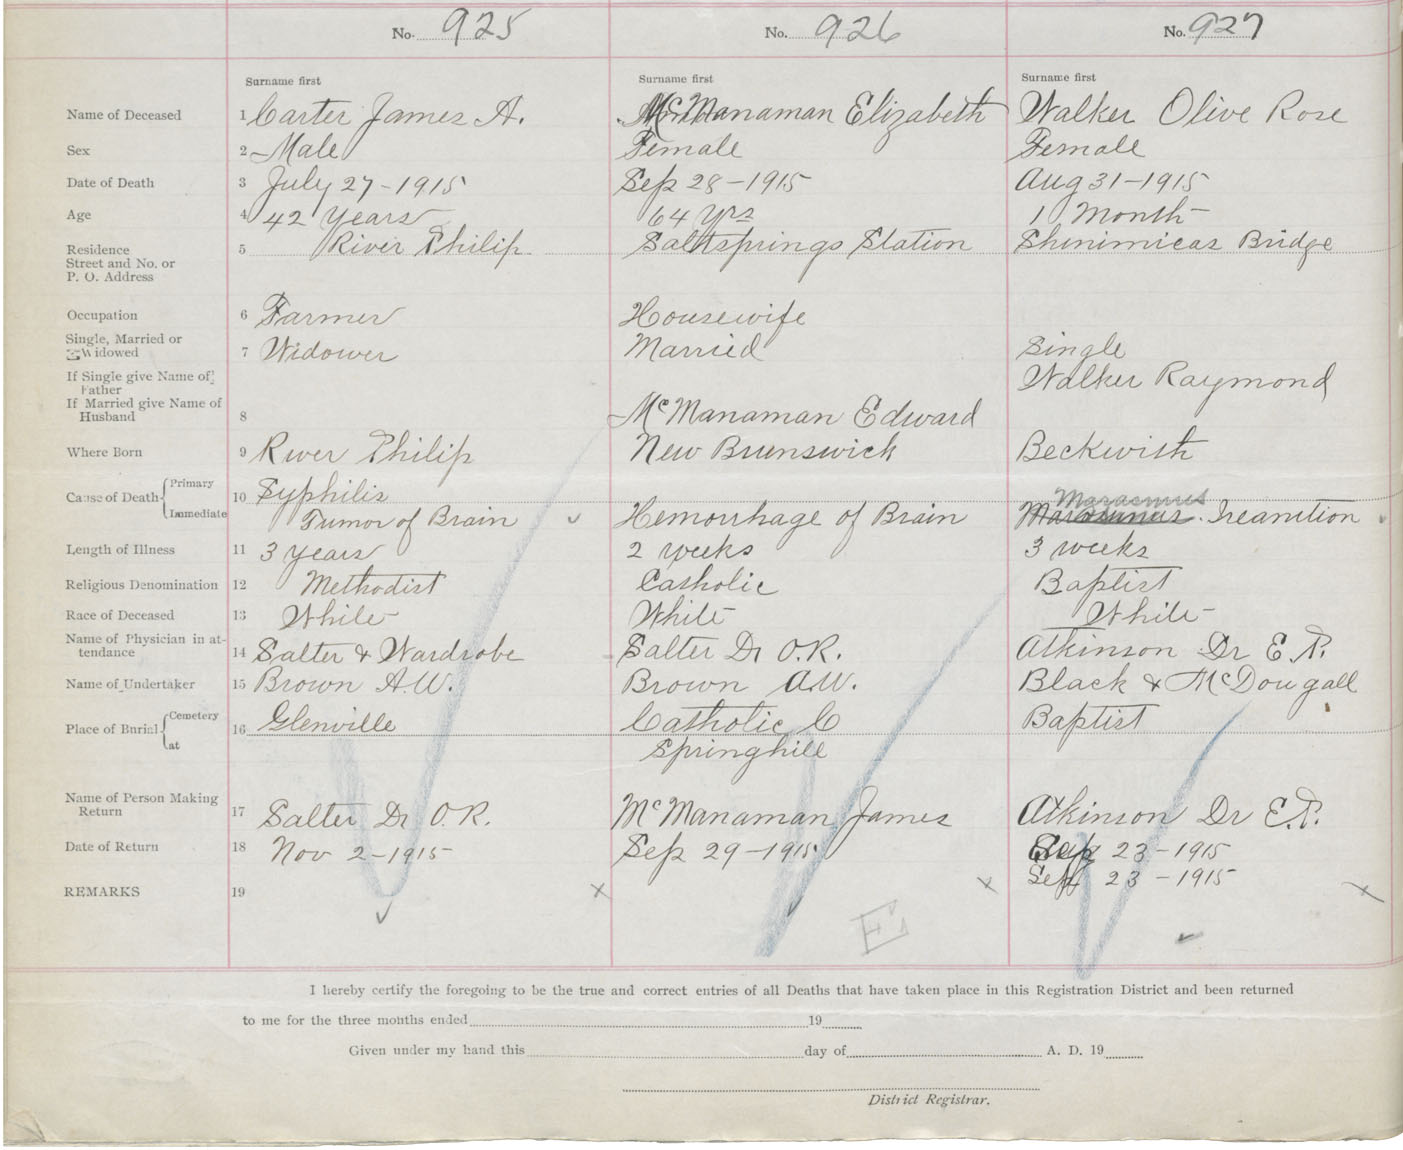 No. 925 No. 926 No. 927
Surname first Surname first Surname first
Name of Deceased 1 Carter James A. McManaman Elizabeth Walker Olive Rose
Sex 2 Male Female Female
Date of Death 3 July 27-1915 Sep 28-1915 Aug 31-1915
Age 4 42 Years 64 Yrs 1 Month
Residence 5 River Philip Saltsprings Station Shinimicas Bridge
Street and No. or
P. O. Address
Occupation 6 Farmer Housewife
Single, Married or
Widowed 7 Widower Married Single
If Single give Name of Walker Raymond
Father
If Married give Name of
Husband 8 McManaman Edward
Where Born 9 River Philip New Brunswick Beckwith
Cause of Death Primary 10 Syphilis Marasmus
Immediate Tumor of Brain Hemorrhage of Brain Marasmus. Ineanition
Length of Illness 11 3 years 2 weeks 3 weeks
Religious Denomination 12 Methodist Catholic Baptist
Race of Deceased 13 White White White
Name of Physician in at-
tendance 14 Salter & Wardrobe Salter Dr O.R. Atkinson Dr E.P.
Name of Undertaker 15 Brown A.W. Brown A.W. Black & McDougall
Place of Burial Cemetery 16 Glenville Catholic C Baptist
at Springhill
Name of Person Making
Return 17 Salter Dr O.R. McManaman James Atkinson Dr E.P.
Date of Return 18 Nov 2-1915 Sep 29-1915 23-1915
Sep 23-1915
REMARKS 19 x x x
E
I hereby certify the foregoing to be the true and correct entries of all Deaths that have taken place in this Registration District and been returned
to me for the three months ended 19
Given under my hand this day of A. D. 19
District Registrar.